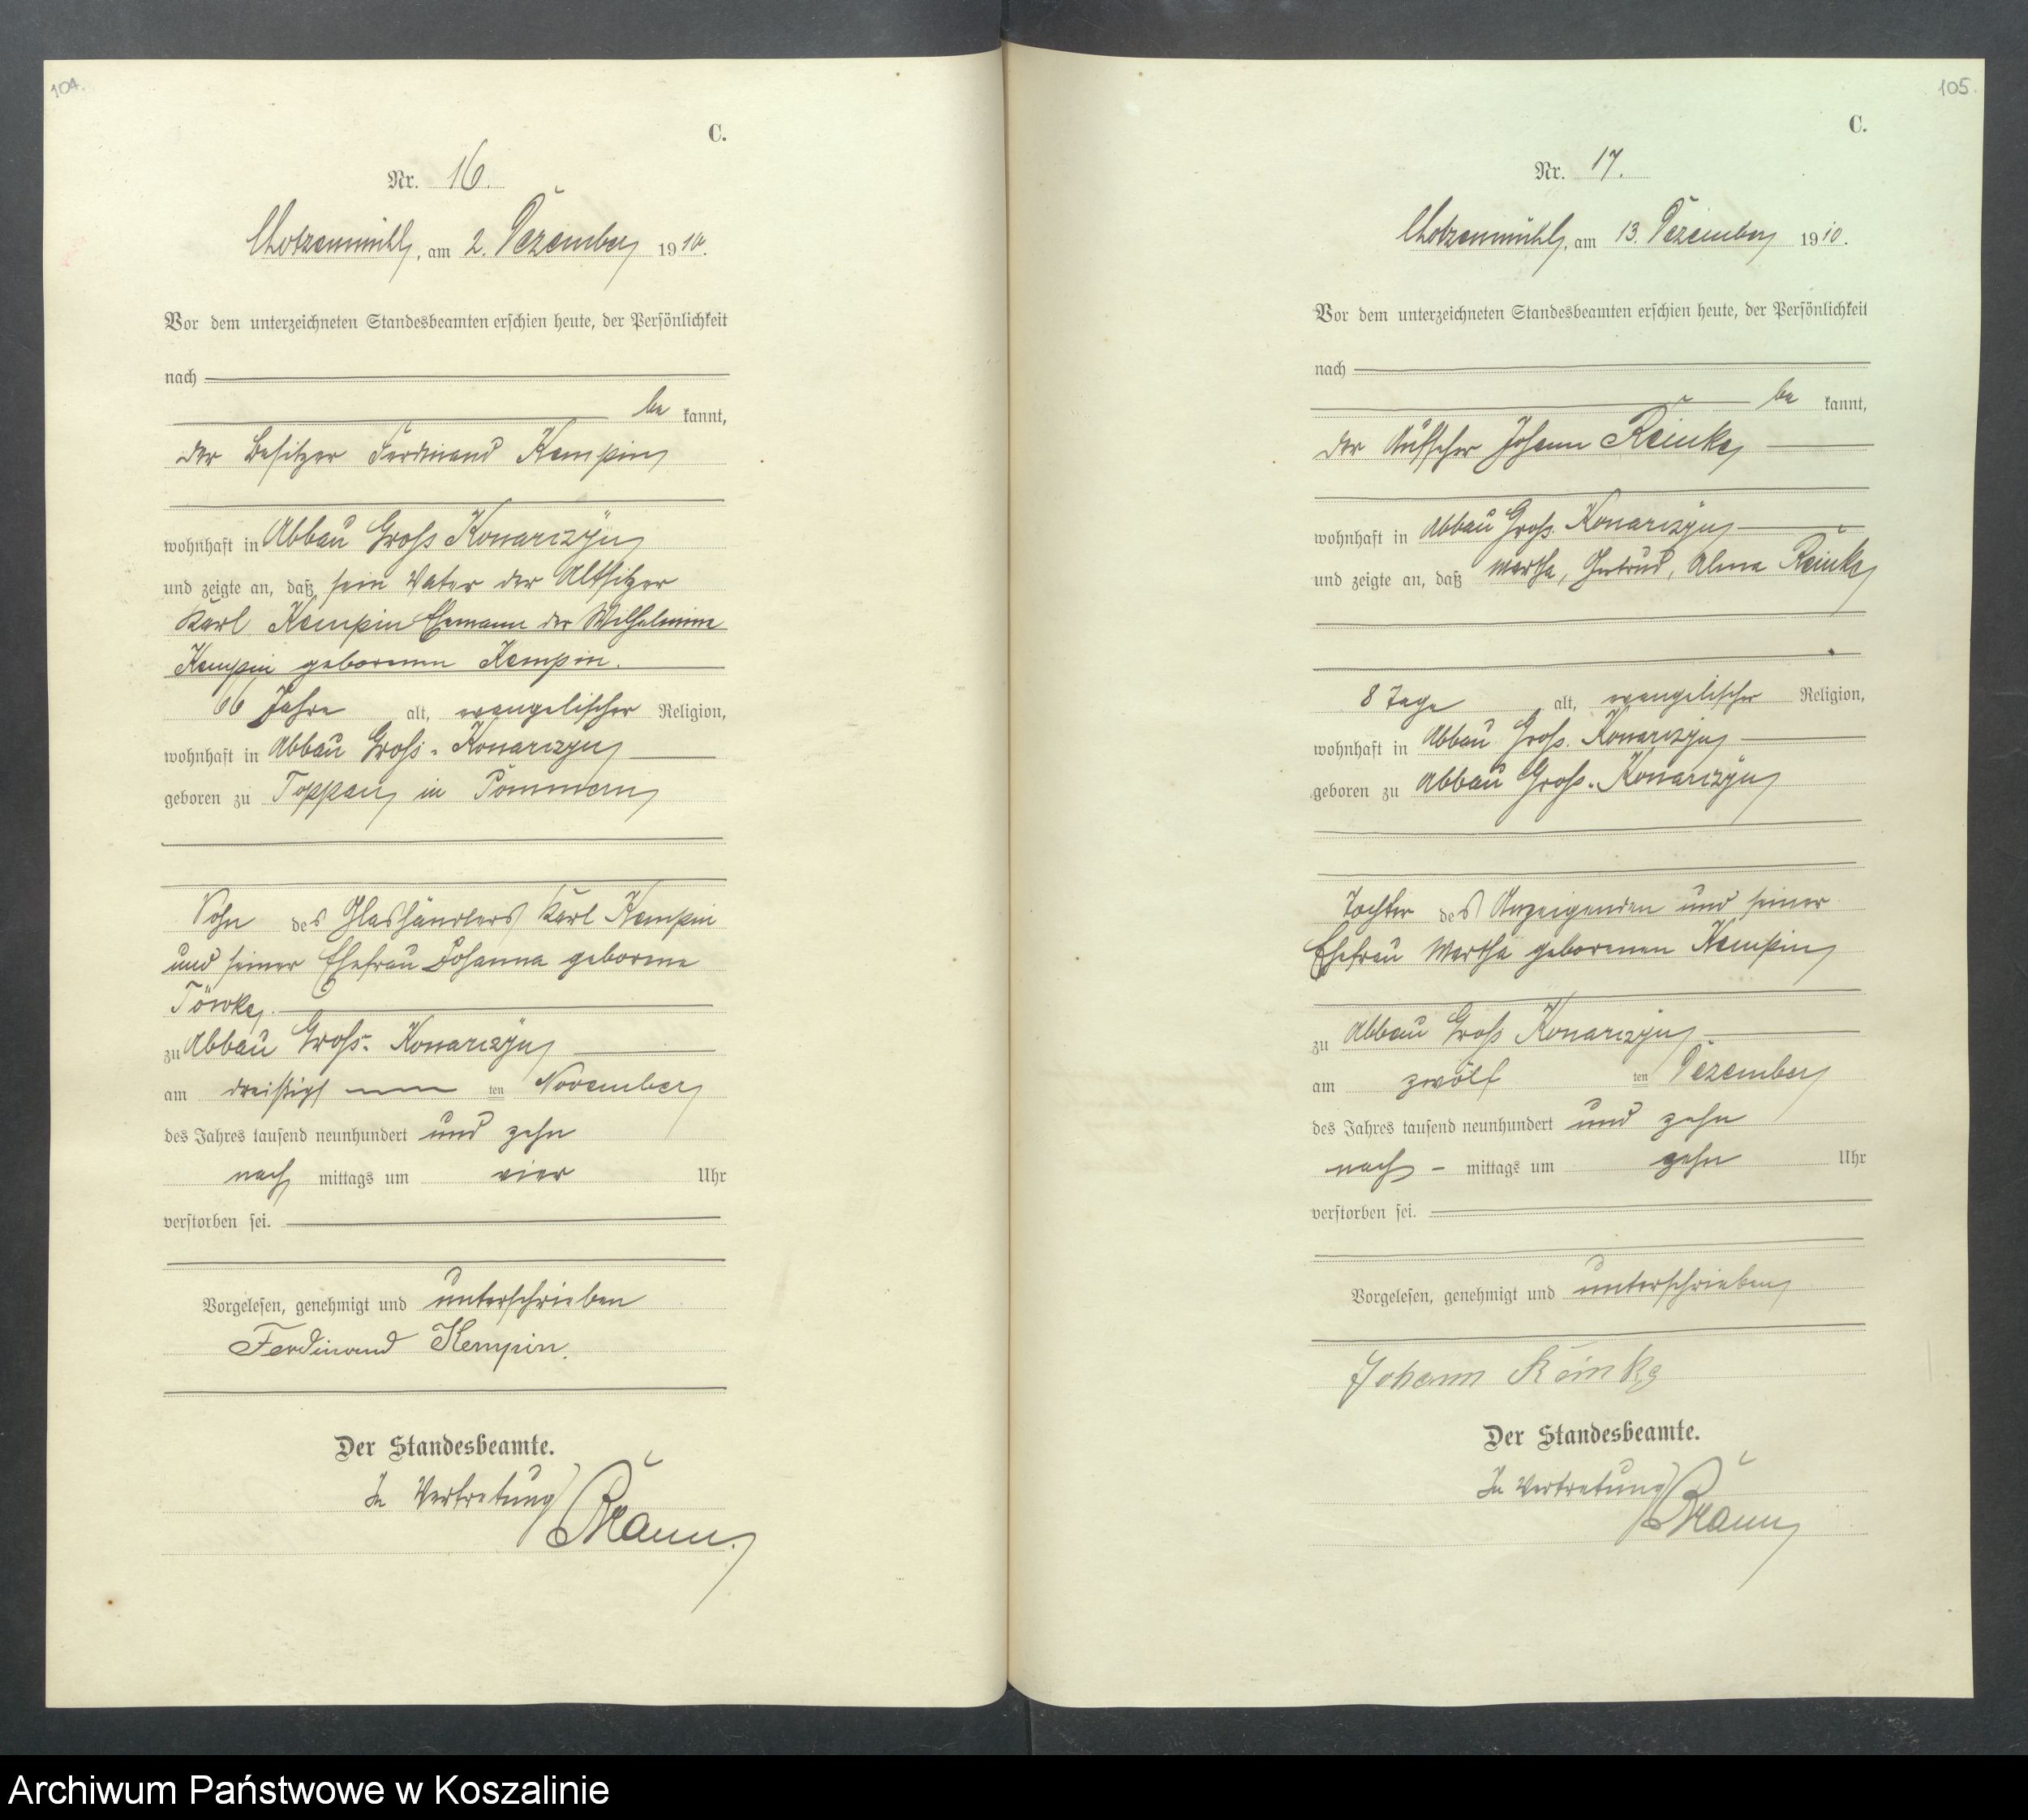 104.
C.
Nr. 16.
Chotzenmühl, am 2. Dezember 1910.
Vor dem unterzeichneten Standesbeamten erschien heute, der Persönlichkeit
nach
be kannt,
der Besitzer Ferdinand Kempin
wohnhaft in Abbau Gross Konarczyn
und zeigte an, daß sein Vater der Altsitzer
Karl Kempin Ehemann der Wilhelmine
Kempin geborenen Kempin.
66 Jahre alt, evangelischer Religion,
wohnhaft in Abbau Gross-Konarczyn
geboren zu Toppan in Pommern
Sohn des Glashändlers Karl Kempin
und seiner Ehefrau Johanna geborene
zu Abbau Gross-Konarczyn
am dreißigsten November
des Jahres tausend neunhundert und zehn
nach mittags um vier Uhr
verstorben sei.
Vorgelesen, genehmigt und unterschrieben
Ferdinand Kempin.
Der Standesbeamte.
In Vertretung
Braun.
105.
C.
Nr. 17.
Chotzenmühl, am 13. Dezember 1910.
Vor dem unterzeichneten Standesbeamten erschien heute, der Persönlichkeit
nach
be kannt,
der Aufseher Johann Reinke
wohnhaft in Abbau Gross Konarczyn
und zeigte an, daß Martha, Gertrud, Alma Reinke
8 Tage alt, evangelischer Religion,
wohnhaft in Abbau Gross-Konarczyn
geboren zu Abbau Gross-Konarczyn
Tochter des Anzeigenden und seiner
Ehefrau Martha geborenen Kempin
zu Abbau Gross Konarczyn
am zwölf ten Dezember
des Jahres tausend neunhundert und zehn
nach- mittags um zehn Uhr
verstorben sei.
Vorgelesen, genehmigt und unterschrieben
Johann Reinke
Der Standesbeamte.
In Vertretung
Braun
Archiwum Państwowe w Koszalinie